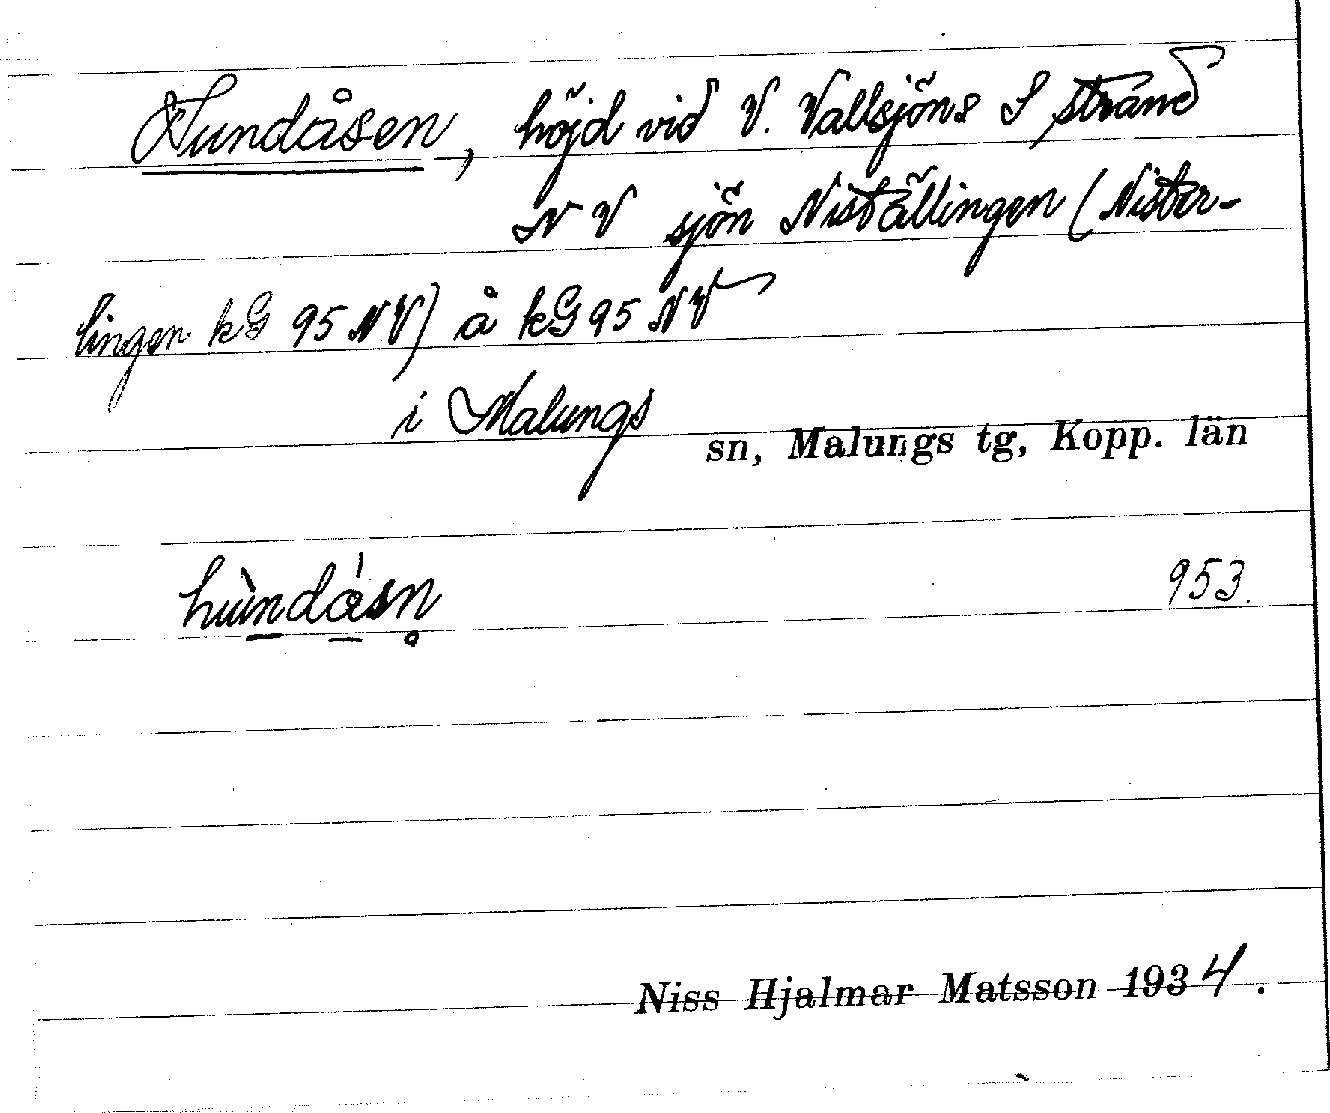 Hundåsen, höjd vid V. Vallsjöns S strand
NV sjön Niställingen (Nister-
lingen kG 95 NV) å kG 95 NV
i Malungs sn, Malungs tg, Kopp. län
hùndåsn̥ 953.
Niss Hjalmar Matsson 1934.